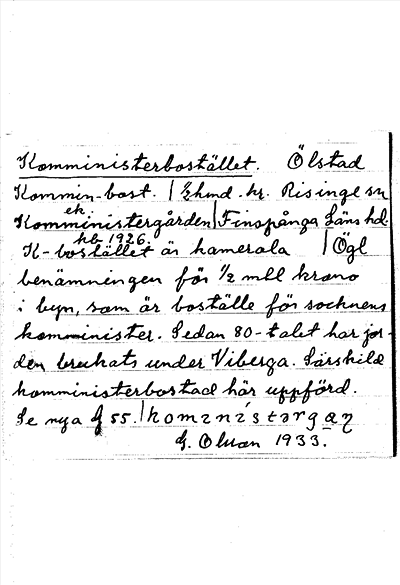 Komministerbostället. Ölstad
Kommin-bost. / ½ hmd. kr. Risinge sn
ek
Komministergården / Finspånga Läns hd.
hb 1926.
K-bostället är kamerala / Ögl
benämningen för ½ mtl krono
i byn, som är boställe för socknens
komminister. Sedan 80-talet har jor-
den brukats under Viberga. Särskild
komministerbostad här uppförd.
Se nya g 55. /
G. Olson 1933.